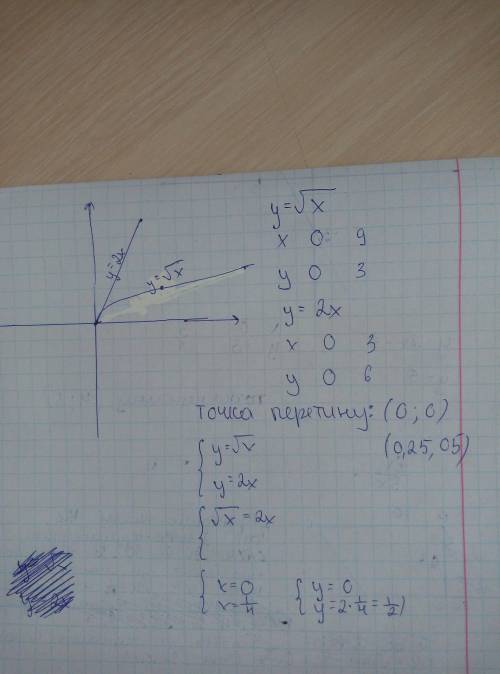 y=√x
x 0 9
y=2x
y=√x
y 0 3
y=2x
x 0 3
y 0 6
точка перетину: (0;0)
(0,25, 05)
{ y=√x
y=2x
{ √x=2x
{ x=0 { y=0
x=1/4 y=2·1/4=1/2)